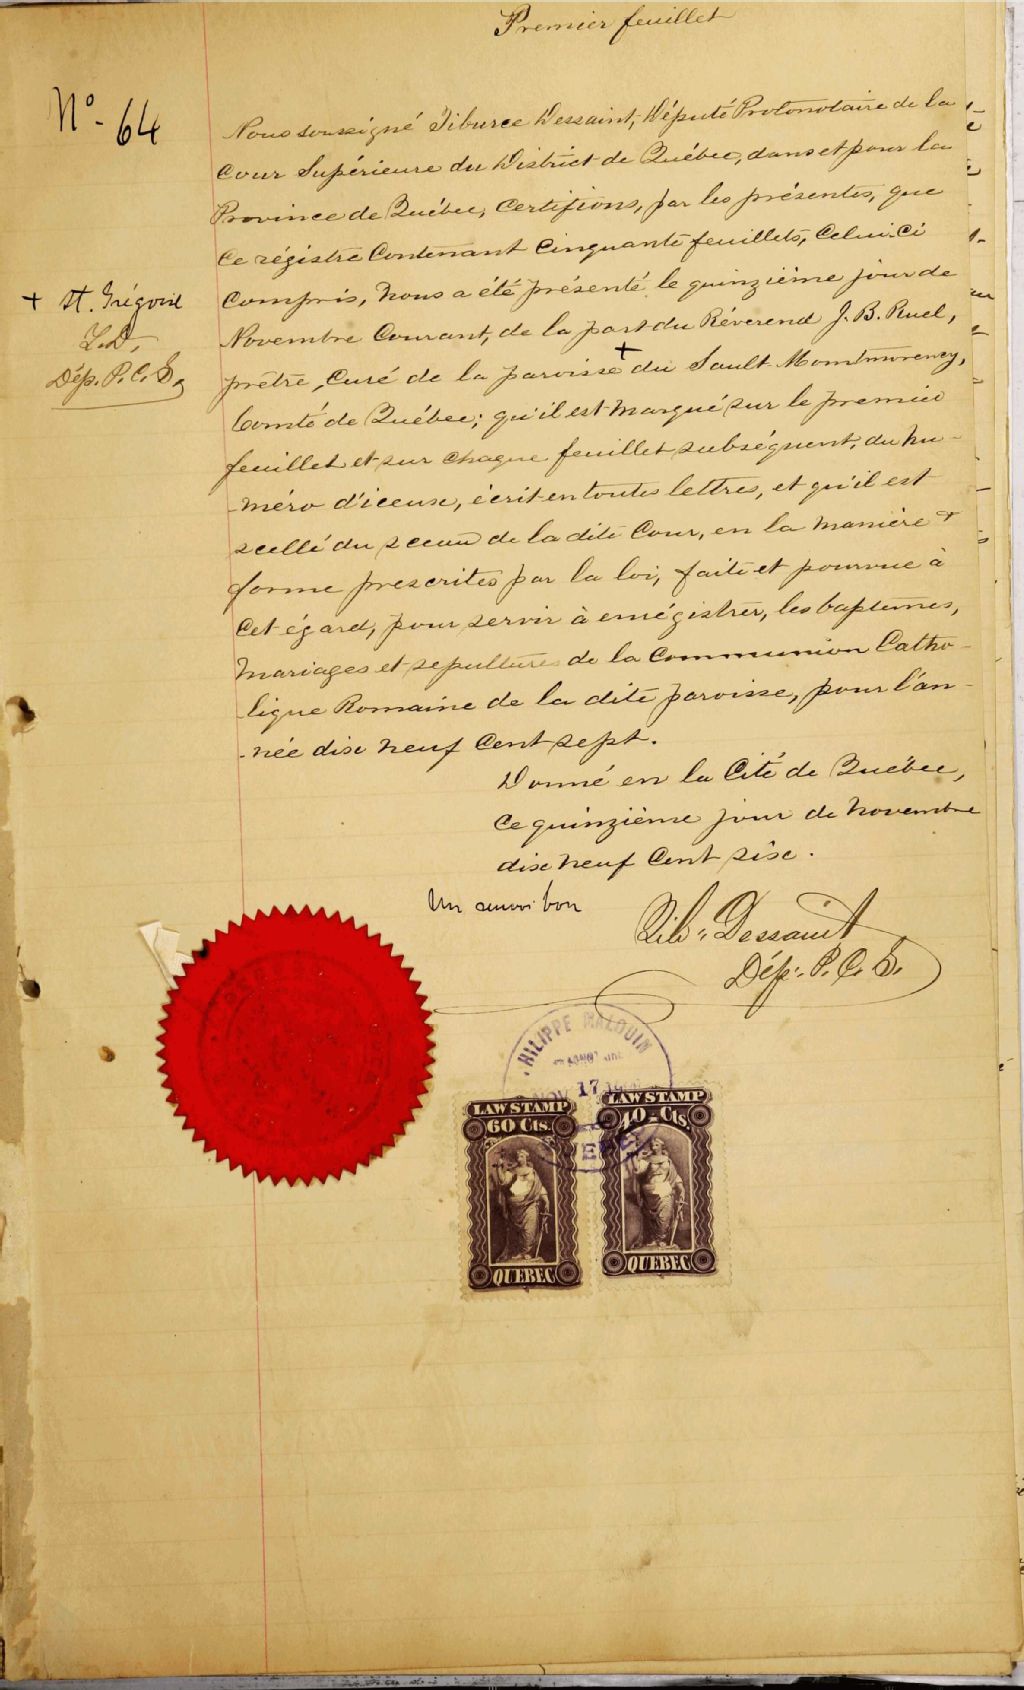 Premier feuillet
No. 64
Nous soussigné Tiburce Dessaint, Député Protonotaire de la
Cour Supérieure du District de Québec, dans et pour la
Province de Québec, Certifions, par les présentes, que
ce régistre Contenant Cinquante feuillets, Celui-Ci
Compris, Nous a été présenté le quinzième jour de
Novembre Courant, de la part du Réverend J. B. Ruel,
prêtre, Curé de la paroisse + du Sault Montmorency,
Comté de Québec; qu'il est marqué sur le premier
feuillet et sur chaque feuillet subséquent, du nu-
-méro d'iceux, écrit en toutes lettres, et qu'il est
scellé du sceau de la dite Cour, en la manière &
forme prescrites par la loi, faite et pourvue à
Cet égard, pour servir à enrégistrer, les baptêmes,
Mariages et sepultures de la Communion Catho-
-lique Romaine de la dite paroisse, pour l'an-
-née dix neuf Cent sept.
+ St. Grégoire
T.D,
Dép. P. C. S.
Donné en la Cité de Québec,
Ce quinzième jour de Novembre
dix neuf Cent six.
Un renvoi bon
Tib: Dessaint
Dép. P. C. S.
PHILIPPE MALOUIN
NOV 17
LAW STAMP
60 Cts.
QUEBEC
LAW STAMP
40-Cts.
QUEBEC